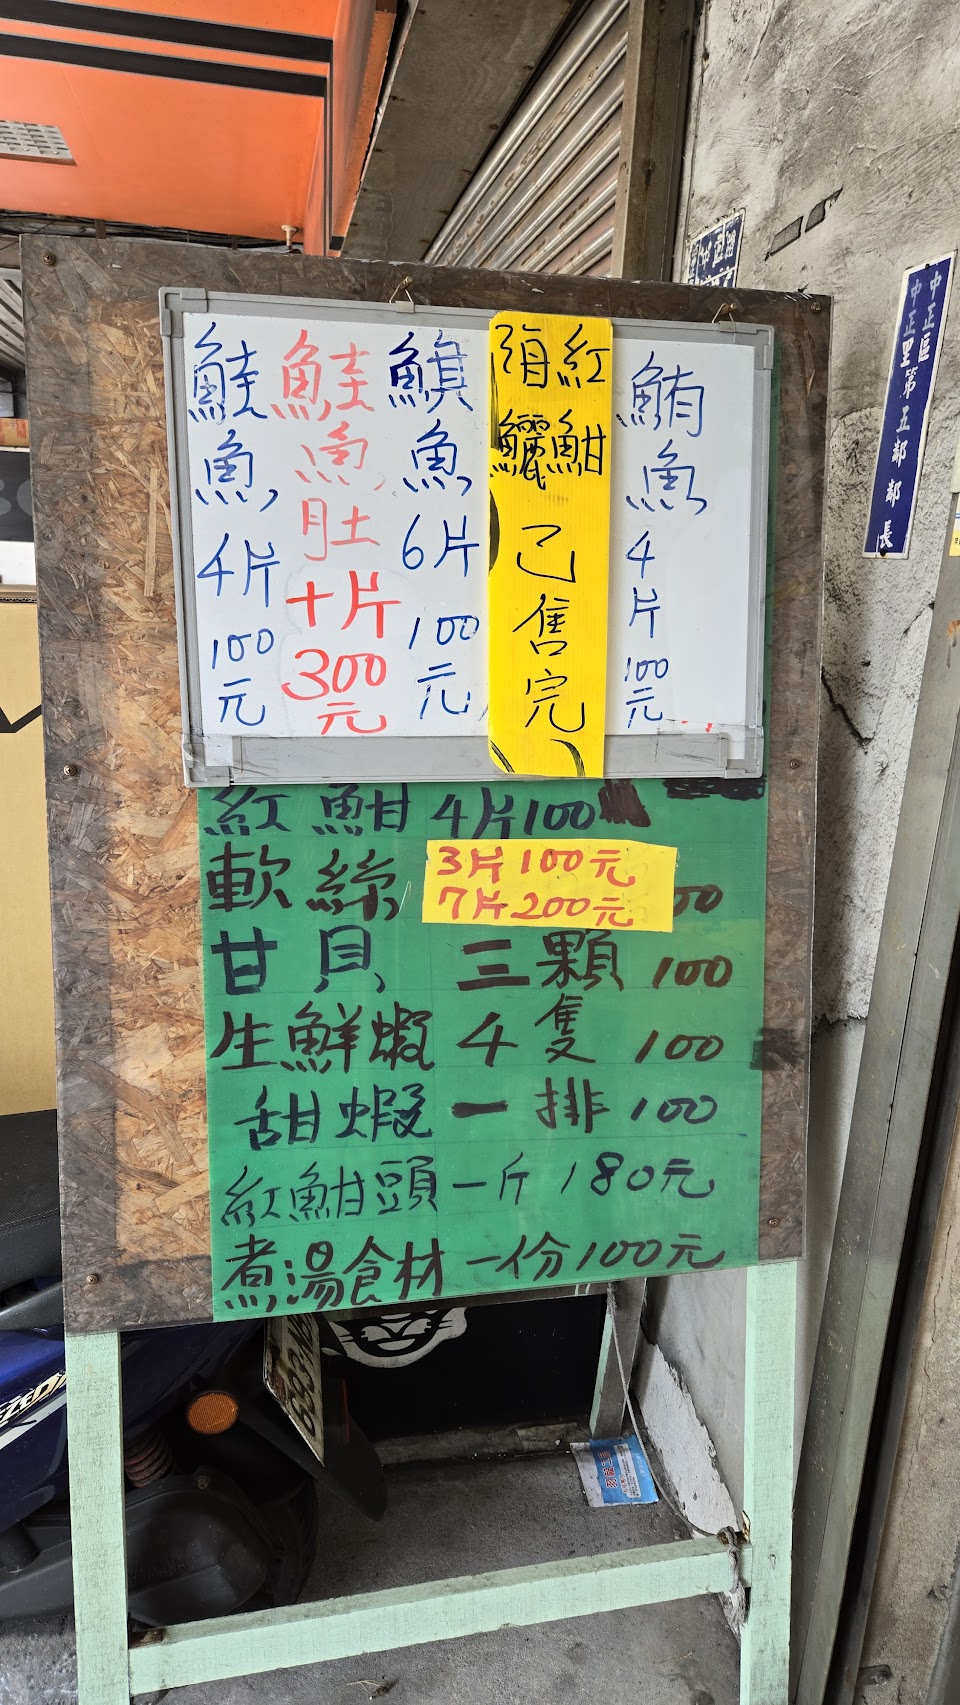 鮭魚 4片 100元
鮭魚肚 十片 300元
鯕魚 6片 100元
紅魽
海鱺
已售完
鮪魚 4片 100元
紅魽 4片100
軟絲 3片100元
7片200元
00
甘貝 三顆 100
生鮮蝦 4隻 100
甜蝦 一排 100
紅魽頭 一斤 180元
煮湯食材 一份100元
中正區
中正里第五鄰 鄰長